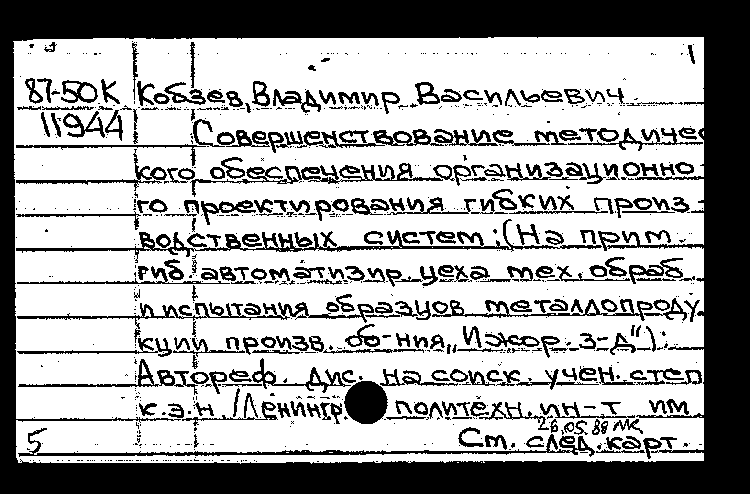 1
87-50К Кобзев, Владимир Васильевич
11944 Совершенствование методичес
кого обеспечения организационно-
го проектирования гибких произ-
водственных систем: (На прим.
гиб. автоматизир. цеха мех. обраб.
и испытания образцов металлопроду-
кции произв. об-ния „Ижор. з-д"):
Автореф. дис. на соиск. учен. степ
к.э.н. /Ленингр политехн. ин-т им
26.05.88
5 См. след. карт.